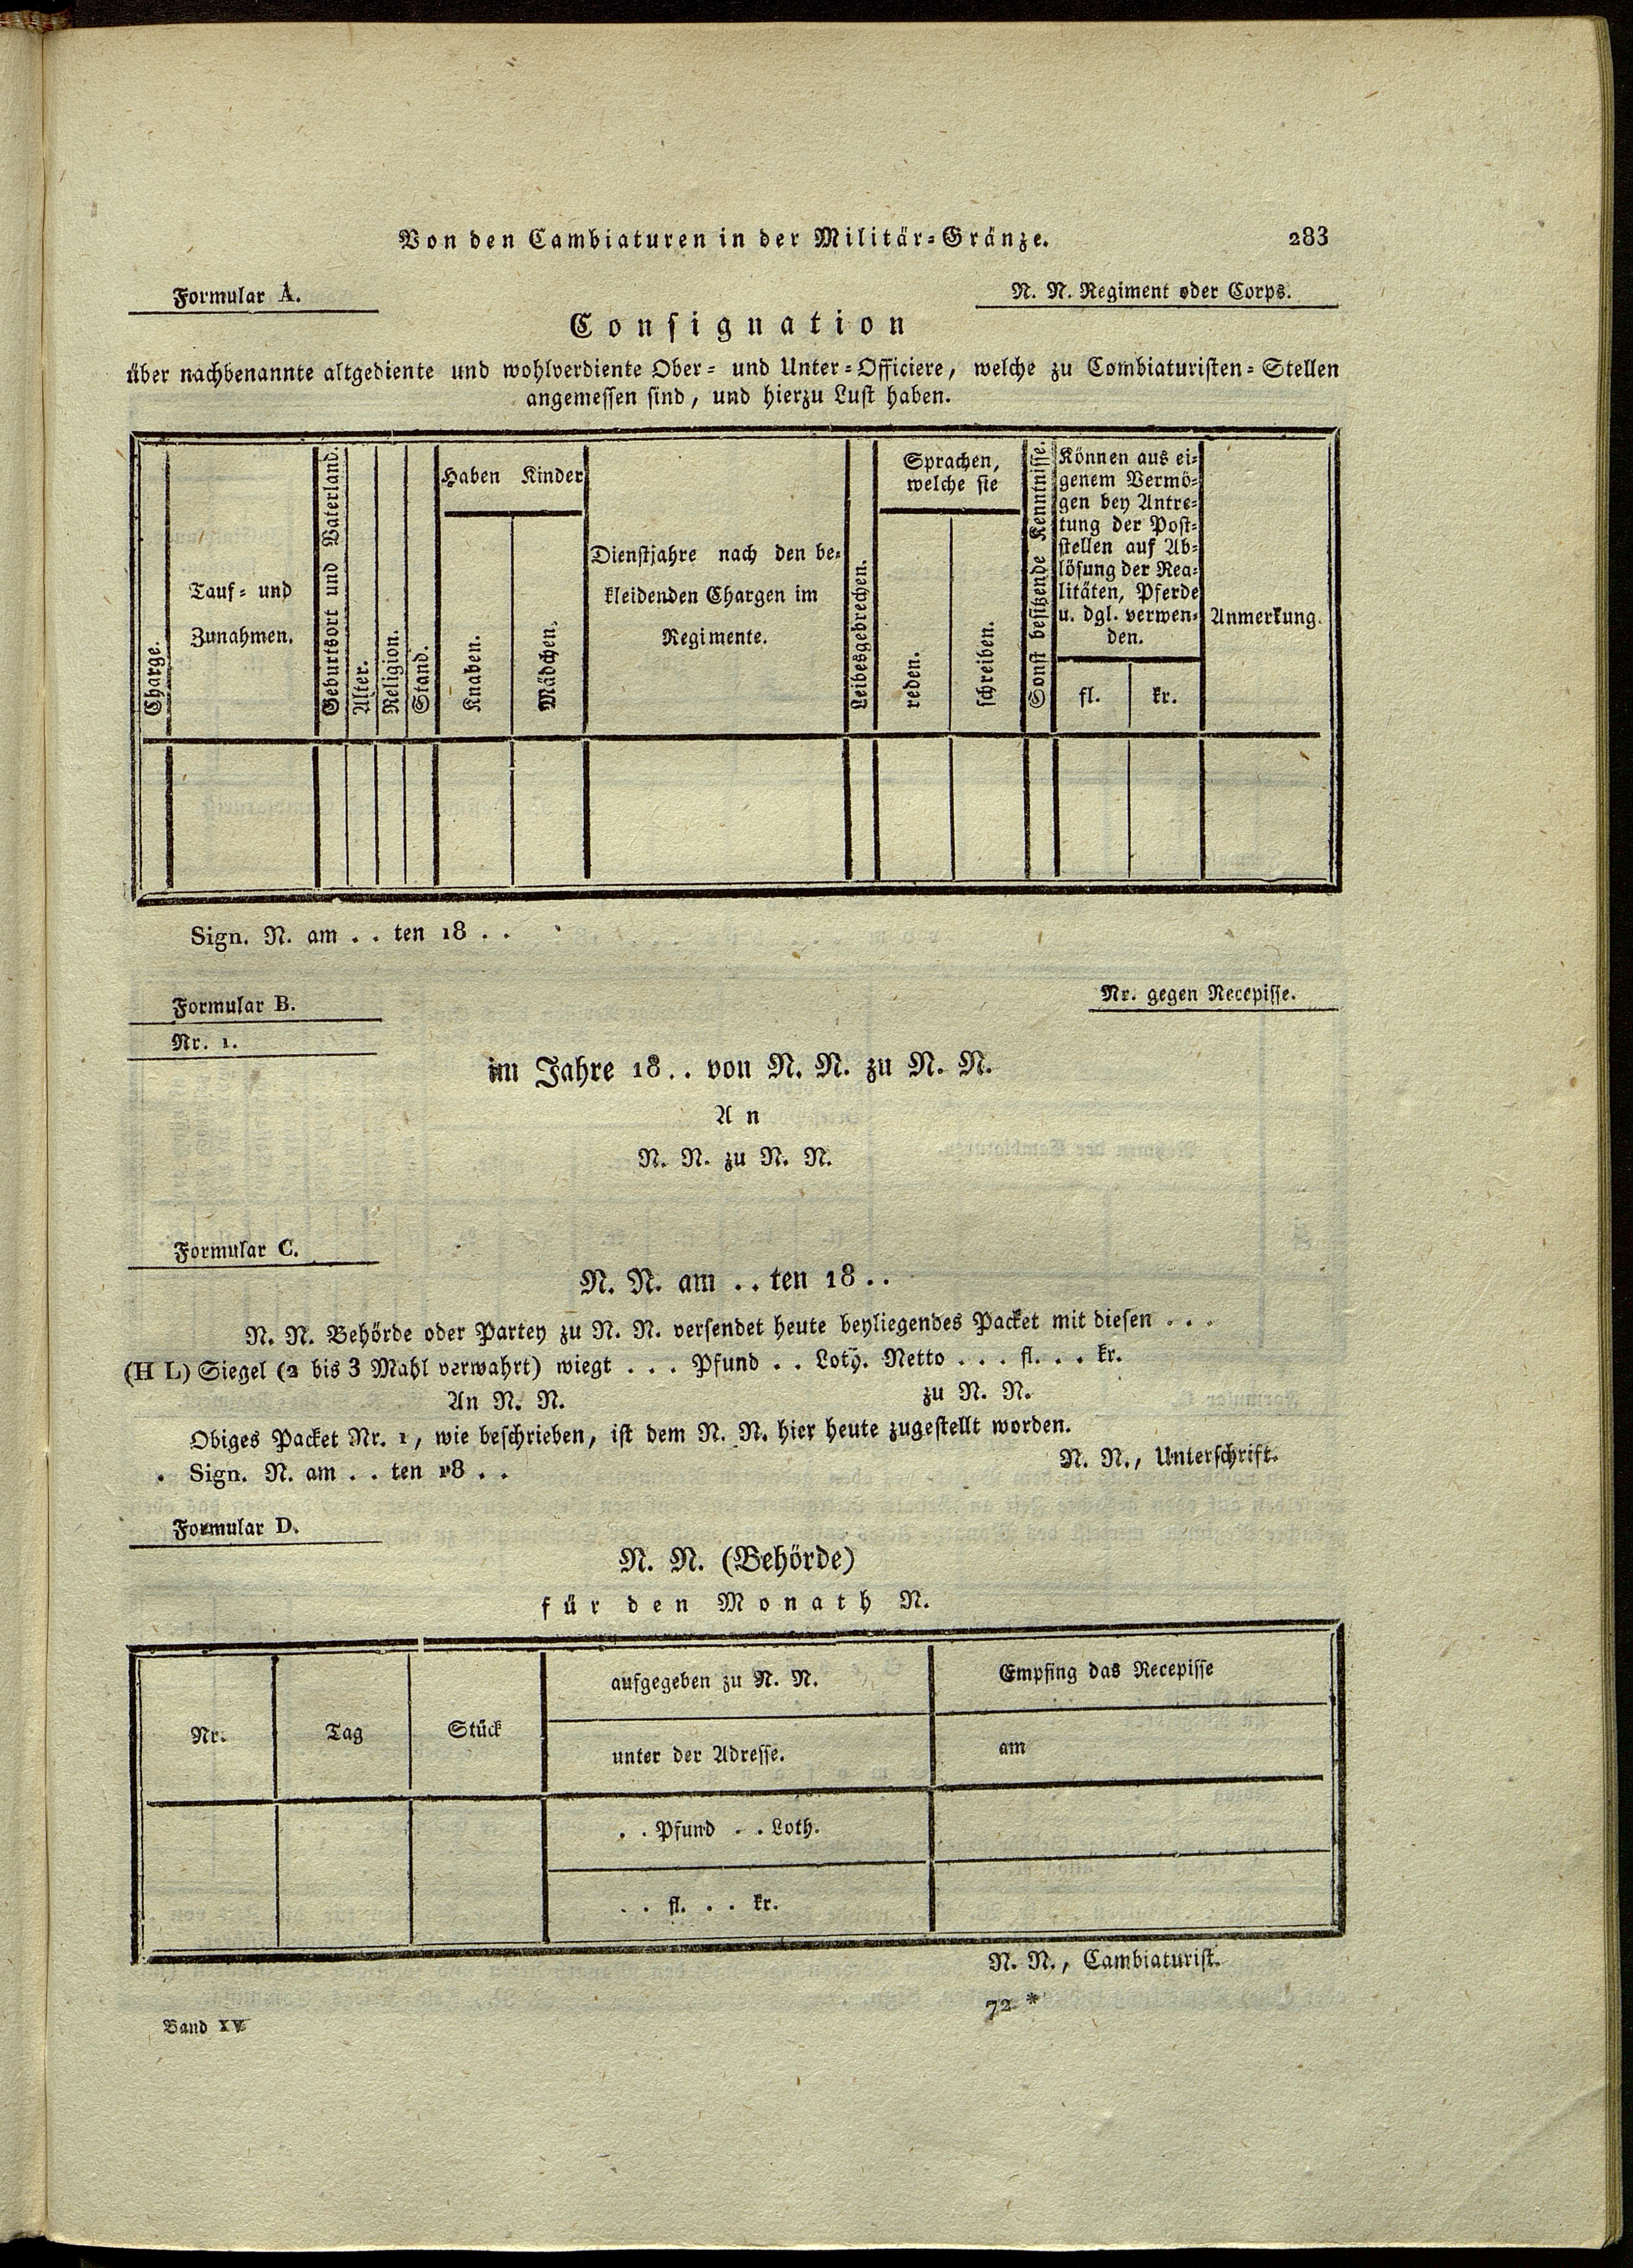 Von den Cambiaturen in der Militär-Gränze. 283
Formular A.
N. N. Regiment oder Corps.
Consignation
über nachbenannte altgediente und wohlverdiente Ober- und Unter-Officiere, welche zu Combiaturisten-Stellen
angemessen sind, und hierzu Lust haben.
Charge.
Tauf- und
Zunahmen.
Geburtsort und Vaterland.
Alter.
Religion.
Stand.
Haben Kinder
Knaben.
Mädchen.
Dienstjahre nach den be-
kleidenden Chargen im
Regimente.
Leibesgebrechen.
Sprachen,
welche sie
reden.
schreiben.
Sonst besitzende Kenntnisse.
Können aus ei-
genem Vermö-
gen bey Antre-
tung der Post-
stellen auf Ab-
lösung der Rea-
litäten, Pferde
u. dgl. verwen-
den.
fl.
kr.
Anmerkung.
Sign. N. am . . ten 18 . .
Formular B.
Nr. gegen Recepisse.
Nr. 1.
im Jahre 18 . . von N. N. zu N. N.
An
N. N. zu N. N.
Formular C.
N. N. am . . ten 18 . .
N. N. Behörde oder Partey zu N. N. versendet heute beyliegendes Packet mit diesen . . .
(H L) Siegel (2 bis 3 Mahl verwahrt) wiegt . . . Pfund . . Loth. Netto . . . fl. . . kr.
An N. N. zu N. N.
Obiges Packet Nr. 1, wie beschrieben, ist dem N. N. hier heute zugestellt worden.
Sign. N. am . . ten 18 . . N. N., Unterschrift.
Formular D.
N. N. (Behörde)
für den Monath N.
Nr.
Tag
Stück
aufgegeben zu N. N.
unter der Adresse.
Empfing das Recepisse
am
. . Pfund . . Loth.
. . fl. . . kr.
N. N., Cambiaturist.
72 *
Band XV